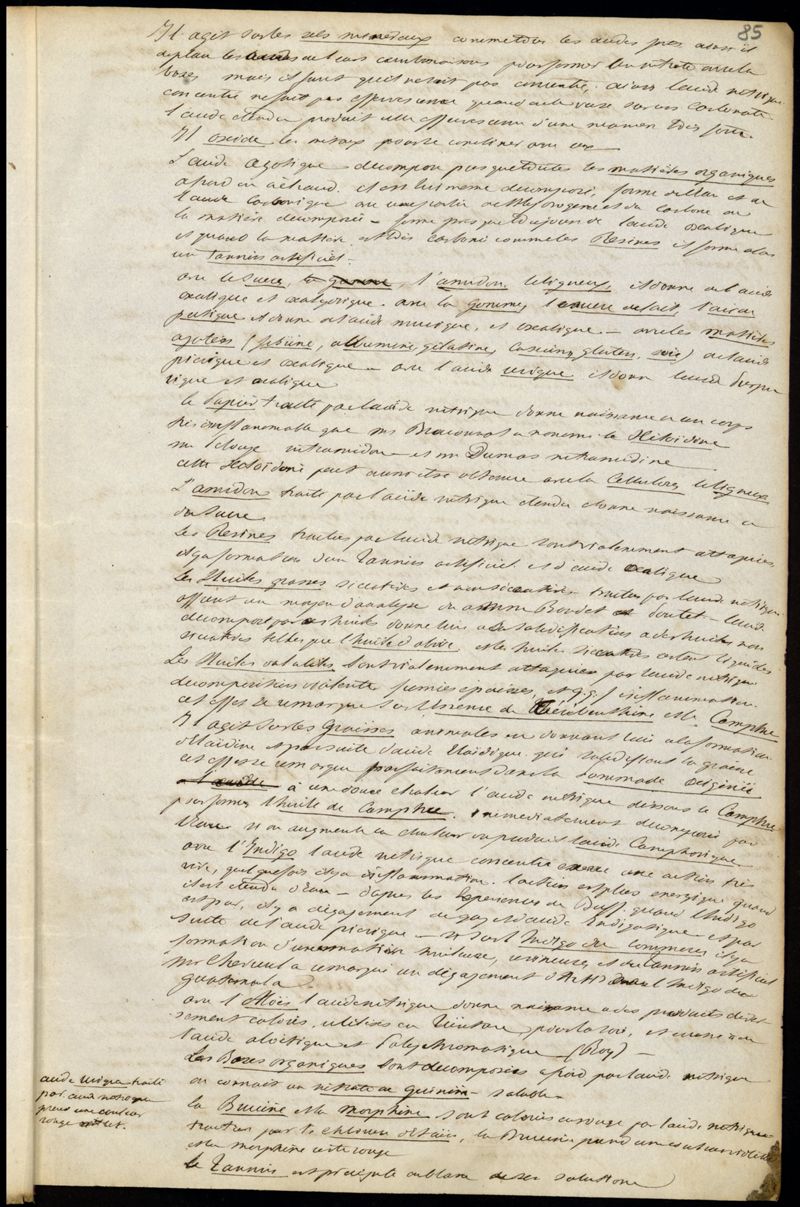 85
Il agit sur les sels minéraux comme tous les acides
déplace les acides de leurs combinaisons pour former un nitrate avec la
base mais il faut qu'il ne soit pas concentré. ainsi l'acide nitrique
concentré ne fait pas effervescence quand on le verse sur un carbonate
l'acide étendu produit une effervescence d'une manière très forte.
Il oxide les métaux pour se combiner avec eux
L'acide azotique décompose presque toutes les matières organiques
à froid ou à chaud. et est lui même décomposé, forme de l'eau et de
l'acide carbonique avec une partie de l'hydrogène et du carbone de
la matière décomposée - forme presque toujours de l'acide oxalique
et quand la matière est très carbonée comme les Résines il forme alors
un Tannin artificiel.
avec le sucre, la gomme, l'amidon, le ligneux, il donne de l'acide
oxalique et oxalhydrique. avec la gomme, le sucre de lait, l'acide
pectique il donne de l'acide mucique, et oxalique - avec les matières
azotées (fibrine, albumine, gélatine, caséum, gluten, soie) de l'acide
picrique et oxalique - avec l'acide urique, il donne l'acide purpu
rique et oxalique
le Papier traité par l'acide nitrique donne naissance à un corps
très inflammable que mr Braconnot a nommé la Xiloïdine
mr Pelouze nitramidon et mr Dumas nitramidine
cette Xiloïdine peut aussi être obtenue avec la Cellulose, le ligneux
L'amidon traité par l'acide nitrique étendu donne naissance à
du sucre
Les Résines traitées par l'acide nitrique sont violemment attaquées,
il y a formation d'un Tannin artificiel et d'acide oxalique
Les Huiles grasses siccatives et non siccatives traitées par l'acide nitrique
offrent un moyen d'analyse Boudet et Poutet - l'acide
décomposé par les huiles donne lieu à la solidification des huiles non
siccatives telles que l'huile d'olive, et les huiles siccatives restent liquides
Les Huiles volatiles sont violemment attaquées par l'acide nitrique
décomposition violente fumées épaisses, et q.q.f. inflammation.
cet effet se remarque sur l'Essence de Térébenthine et le Camphre
Il agit sur les Graisses animales en donnant lieu à la formation
d'Elaïdine et par suite d'acide Elaïdique qui solidifient la graisse
cet effet se remarque parfaitement dans la Pommade oxigénée
à une douce chaleur l'acide nitrique dissous le Camphre
pour former l'huile de Camphre, immédiatement décomposée par
l'eau si on augmente la chaleur on produit l'acide Camphorique
avec l'Indigo l'acide nitrique concentré exerce une action très
vive, quelquefois il y a inflammation. l'action est plus énergique quand
il est étendu d'eau - d'après les Expériences de Buff, quand l'Indigo
est pur, il y a dégagement de gaz et d'acide Indigotique et par
suite de l'acide picrique - si sur l'Indigo du commerce il y a
formation d'une matière huileuse, résineuse, et du Tannin artificiel
mr Chevreul a remarqué un dégagement dans l'Indigo de
Guatemala
avec l'Aloès l'acide nitrique donne naissance à des produits diver
sement colorés, utilisés en Teinture pour la soie, et
l'acide aloétique et Polychromatique - (Roy) -
Les Bases organiques sont décomposées à froid par l'acide nitrique
on connait un nitrate de quinine - soluble -
la Brucine et la morphine sont colorées en rouge par l'acide nitrique
traitées par le chlorure d'Etain, la Brucine prend une couleur violette
et la morphine reste rouge
le Tannin est précipité en blanc de ses solutions
acide urique traité
par l'acide nitrique
prend une couleur
rouge